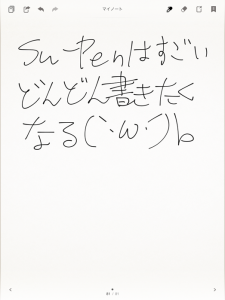 マイノート
Su-Penはすごい
どんどん書きたく
なる(｀･ω･´)b